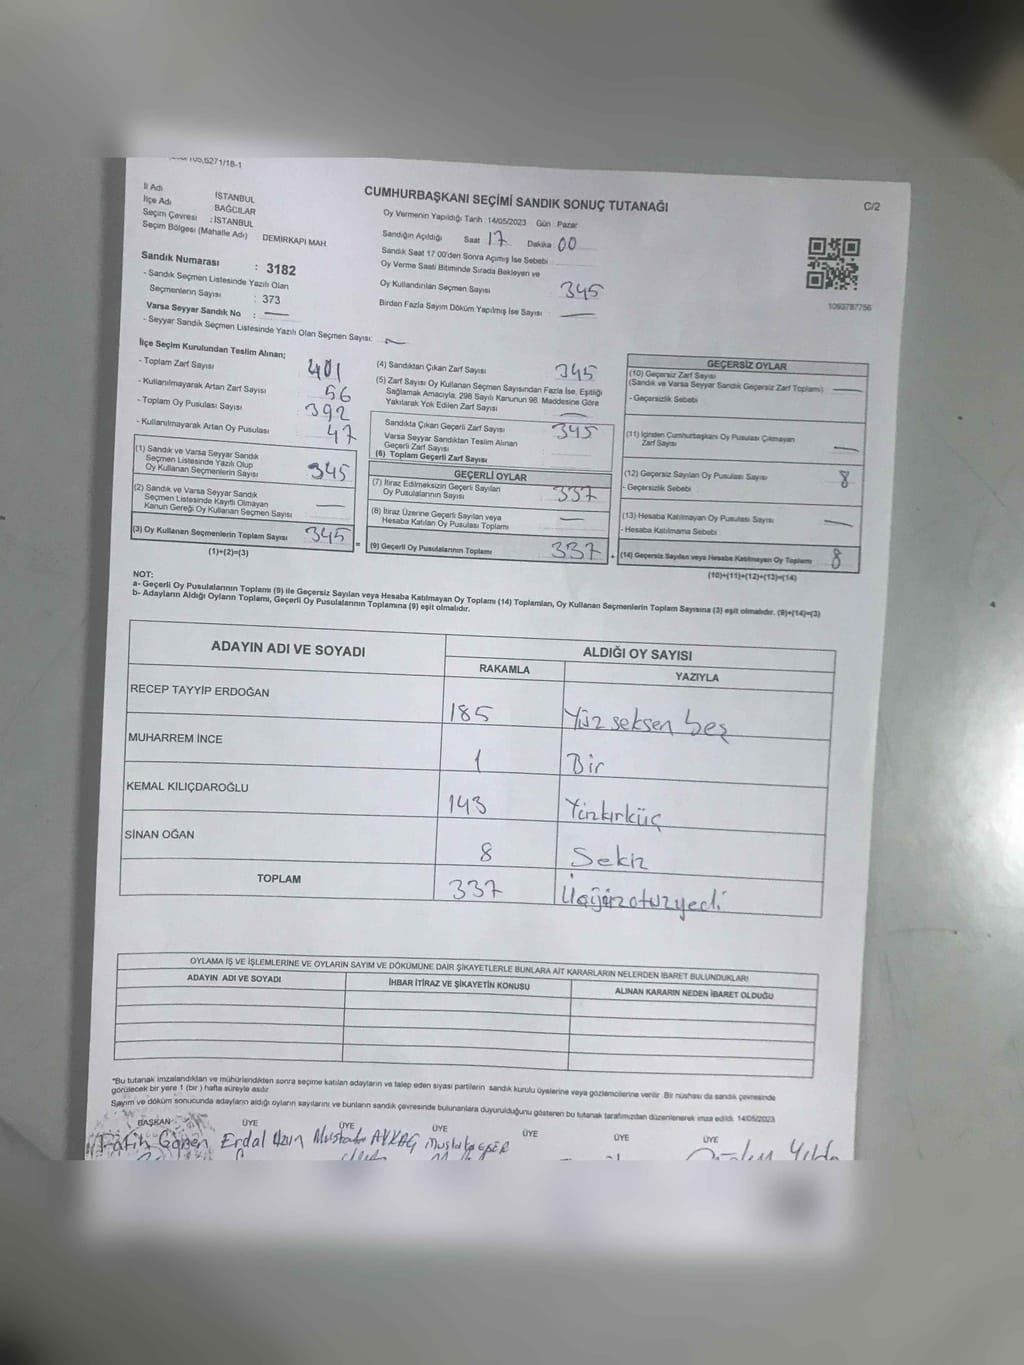 105,6271/18-1
CUMHURBAŞKANI SEÇİMİ SANDIK SONUÇ TUTANAĞI
C/2
İl Adı İSTANBUL
İlçe Adı BAĞCILAR
Seçim Çevresi : İSTANBUL
Seçim Bölgesi (Mahalle Adı) DEMİRKAPI MAH.
Sandık Numarası : 3182
- Sandık Seçmen Listesinde Yazılı Olan
Seçmenlerin Sayısı : 373
Varsa Seyyar Sandık No :
- Seyyar Sandık Seçmen Listesinde Yazılı Olan Seçmen Sayısı:
Oy Vermenin Yapıldığı Tarih : 14/05/2023 Gün : Pazar
Sandığın Açıldığı Saat 17 Dakika 00
Sandık Saat 17 00'den Sonra Açımış İse Sebebi
Oy Verme Saati Bitiminde Sırada Bekleyen ve
Oy Kullandırılan Seçmen Sayısı 345
Birden Fazla Sayım Döküm Yapılmış İse Sayısı
1093787756
İlçe Seçim Kurulundan Teslim Alınan;
- Toplam Zarf Sayısı 401
- Kullanılmayarak Artan Zarf Sayısı 56
- Toplam Oy Pusulası Sayısı 392
- Kullanılmayarak Artan Oy Pusulası 47
(1) Sandık ve Varsa Seyyar Sandık
Seçmen Listesinde Yazılı Olup
Oy Kullanan Seçmenlerin Sayısı 345
(2) Sandık ve Varsa Seyyar Sandık
Seçmen Listesinde Kayıtlı Olmayan
Kanun Gereği Oy Kullanan Seçmen Sayısı
(3) Oy Kullanan Seçmenlerin Toplam Sayısı 345
(1)+(2)=(3)
(4) Sandıktan Çıkan Zarf Sayısı 345
(5) Zarf Sayısı Oy Kullanan Seçmen Sayısından Fazla İse, Eşitliği
Sağlamak Amacıyla; 298 Sayılı Kanunun 98. Maddesine Göre
Yakılarak Yok Edilen Zarf Sayısı
Sandıkta Çıkan Geçerli Zarf Sayısı 345
Varsa Seyyar Sandıktan Teslim Alınan
Geçerli Zarf Sayısı
(6) Toplam Geçerli Zarf Sayısı
GEÇERLİ OYLAR
(7) İtiraz Edilmeksizin Geçerli Sayılan
Oy Pusulalarının Sayısı 337
(8) İtiraz Üzerine Geçerli Sayılan veya
Hesaba Katılan Oy Pusulası Toplamı
(9) Geçerli Oy Pusulalarının Toplamı 337
GEÇERSİZ OYLAR
(10) Geçersiz Zarf Sayısı
(Sandık ve Varsa Seyyar Sandık Geçersiz Zarf Toplamı)
- Geçersizlik Sebebi
(11) İçinden Cumhurbaşkanı Oy Pusulası Çıkmayan
Zarf Sayısı
(12) Geçersiz Sayılan Oy Pusulası Sayısı 8
- Geçersizlik Sebebi
(13) Hesaba Katılmayan Oy Pusulası Sayısı
- Hesaba Katılmama Sebebi
(14) Geçersiz Sayılan veya Hesaba Katılmayan Oy Toplamı 8
(10)+(11)+(12)+(13)=(14)
NOT:
a- Geçerli Oy Pusulalarının Toplamı (9) ile Geçersiz Sayılan veya Hesaba Katılmayan Oy Toplamı (14) Toplamları, Oy Kullanan Seçmenlerin Toplam Sayısına (3) eşit olmalıdır. (9)+(14)=(3)
b- Adayların Aldığı Oyların Toplamı, Geçerli Oy Pusulalarının Toplamına (9) eşit olmalıdır.
ADAYIN ADI VE SOYADI ALDIĞI OY SAYISI
RAKAMLA YAZIYLA
RECEP TAYYİP ERDOĞAN 185 Yüz seksen beş
MUHARREM İNCE 1 Bir
KEMAL KILIÇDAROĞLU 143 Yüzkırküç
SİNAN OĞAN 8 Sekiz
TOPLAM 337 Üçyüzotuzyedi
OYLAMA İŞ VE İŞLEMLERİNE VE OYLARIN SAYIM VE DÖKÜMÜNE DAİR ŞİKAYETLERLE BUNLARA AİT KARARLARIN NELERDEN İBARET BULUNDUKLARI
ADAYIN ADI VE SOYADI İHBAR İTİRAZ VE ŞİKAYETİN KONUSU ALINAN KARARIN NEDEN İBARET OLDUĞU
"Bu tutanak imzalandıktan ve mühürlendikten sonra seçime katılan adayların ve talep eden siyasi partilerin sandık kurulu üyelerine veya gözlemcilerine verilir. Bir nüshası da sandık çevresinde
görülecek bir yere 1 (bir ) hafta süreyle asılır.
Sayım ve döküm sonucunda adayların aldığı oyların sayılarını ve bunların sandık çevresinde bulunanlara duyurulduğunu gösteren bu tutanak tarafımızdan düzenlenerek imza edildi. 14/05/2023
BAŞKAN ÜYE ÜYE ÜYE ÜYE ÜYE ÜYE
Fatih Gönen Erdal Mustafa Mustafa